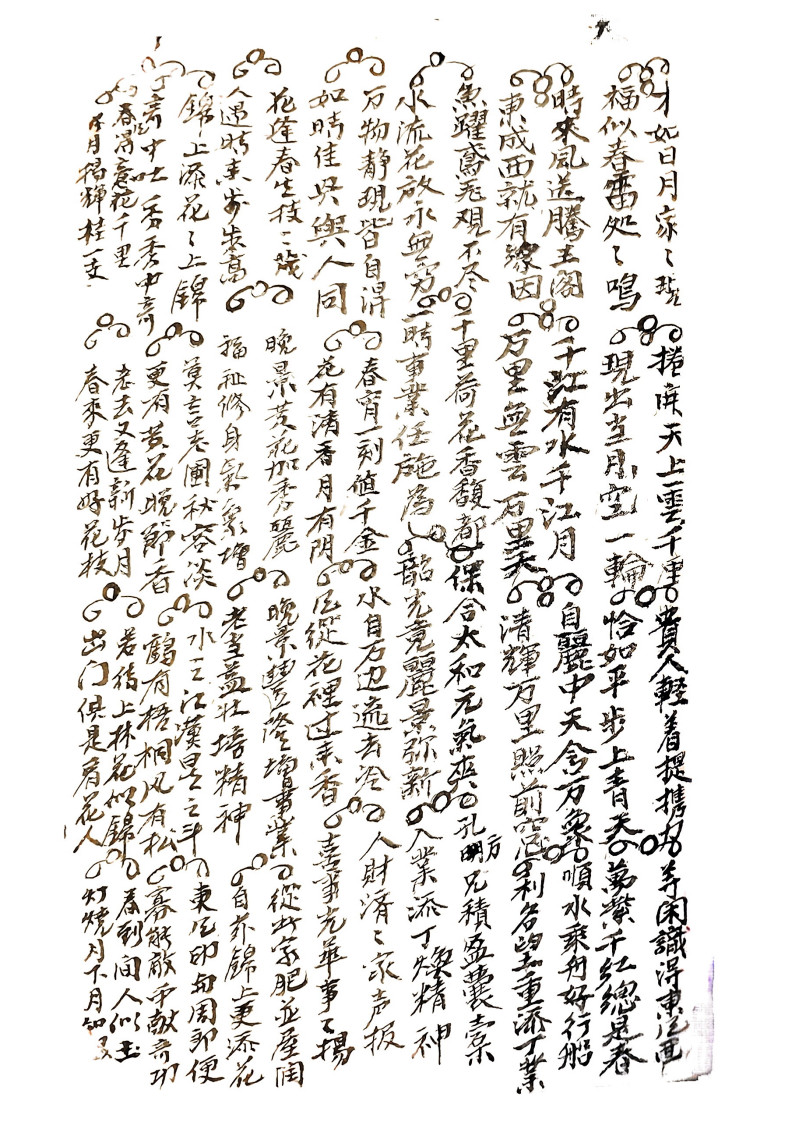 才如日月家々現 捲開天上雲千里 費人輕着提携力 等閑識得東风面
福似春雷処々鳴 現出当月空一輪 恰如平步上青天 萬紫千紅總是春
時來風送騰王閣 千江有水千江月 自麗中天含万象 順水乘舟好行船
東成西就有緣因 万里無雲万里天 清輝万里照前窓 利名重添丁業
魚躍鳶飛观不尽 千里荷花香馥都 保合太和元氣爽 孔明方兄積盈囊橐
水流花放永無窮 一時事業任施為 韶光竟麗景弥新 入業添丁煥精神
万物静观皆自得 春宵一刻值千金 水自万边流去冷 人財済々家声振
如時佳兴與人同 花有清香月有阴 风從花裡过来香 喜事光華事々揚
花逢春生枝々茂 晚景黄花加秀麗 晚景豊隆增事業 從此家肥並屋潤
人遇時来步步高 福祉修身氣象增 老当益壮培精神 自亦錦上更添花
錦上添花々上錦 莫言老圃秋容淡 水之江漢星之斗 東风即周郎便
言中吐秀秀中奇 更有黄花晚節香 鶴有梧桐风有松 寡能敵中献奇功
春得意花千里 老去又逢新岁月 若待上林花似錦 春到間人似玉
月揚輝桂一支 春來更有好花枝 出门俱是看花人 灯燒月下月如